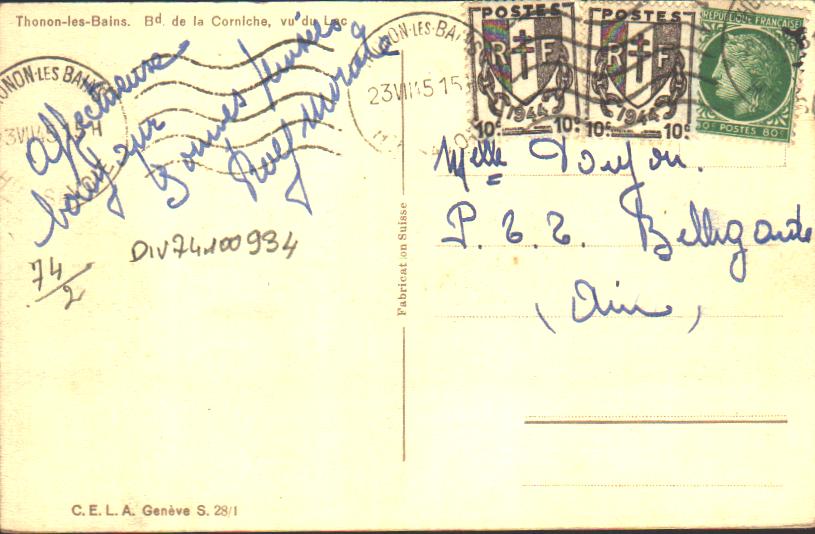 Thonon-les-Bains. Bd. de la Corniche, vu du Lac
THONON-LES-BAINS
23 VII 45 15 H
THONON-LES-BAINS
23 VII 45 15 H
POSTES
RF
1944
10c 10c
POSTES
RF
1944
10c 10c
RÉPUBLIQUE FRANÇAISE
80c POSTES 80c
Affectueux
Bonnes
Rolf
Melle
P. T. T. Bellegarde
(Ain)
DIV74100934
74/2
Fabrication Suisse
C. E. L. A. Genève S. 28/1